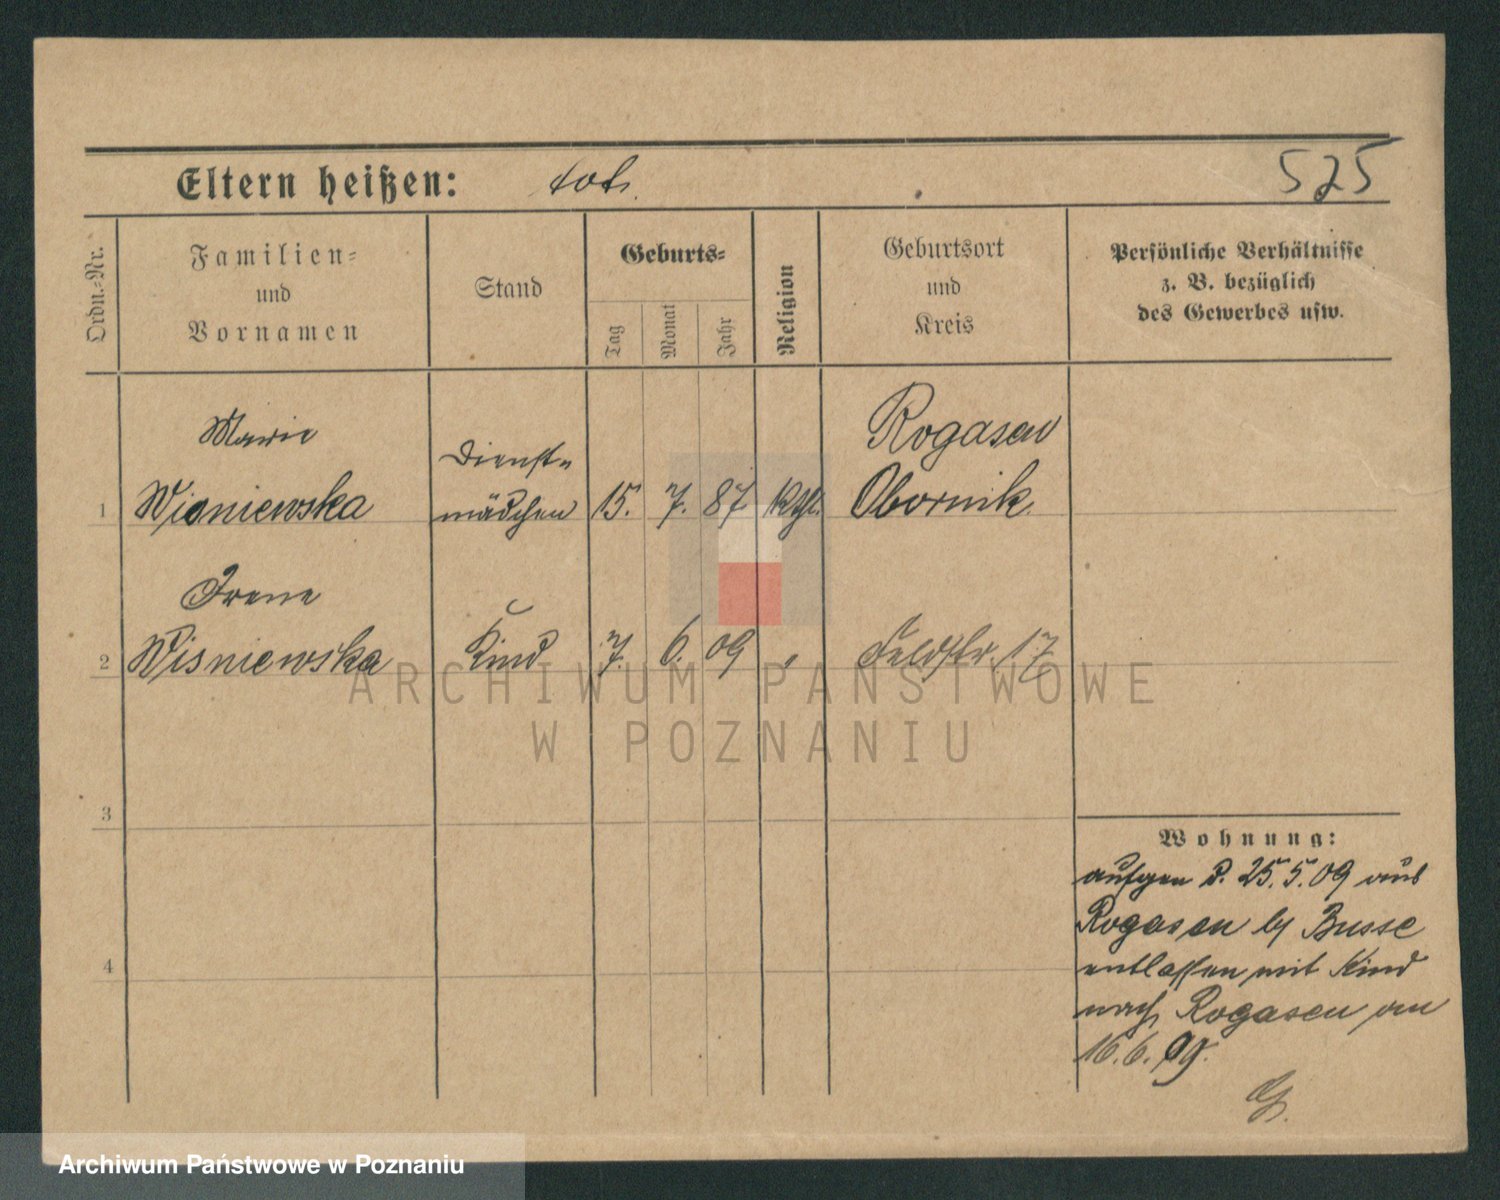 Eltern heißen: tot. 525
Ordn.-Nr.
Familien-
und
Vornamen
Stand
Geburts-
Tag
Monat
Jahr
Religion
Geburtsort
und
Kreis
Persönliche Verhältnisse
z. B. bezüglich
des Gewerbes usw.
Marie
Dienst-
Rogasen
1 Wisniewska mädchen 15. 7. 87 kthl. Obornik.
Irene
2 Wisniewska Kind 7. 6. 09 " Feldstr. 17
ARCHIWUM PAŃSTWOWE
W POZNANIU
3
4
Wohnung:
aufgen d. 25.5.09 aus
Rogasen by Busse
entlassen mit Kind
nach Rogasen am
16.6.09.
Archiwum Państwowe w Poznaniu